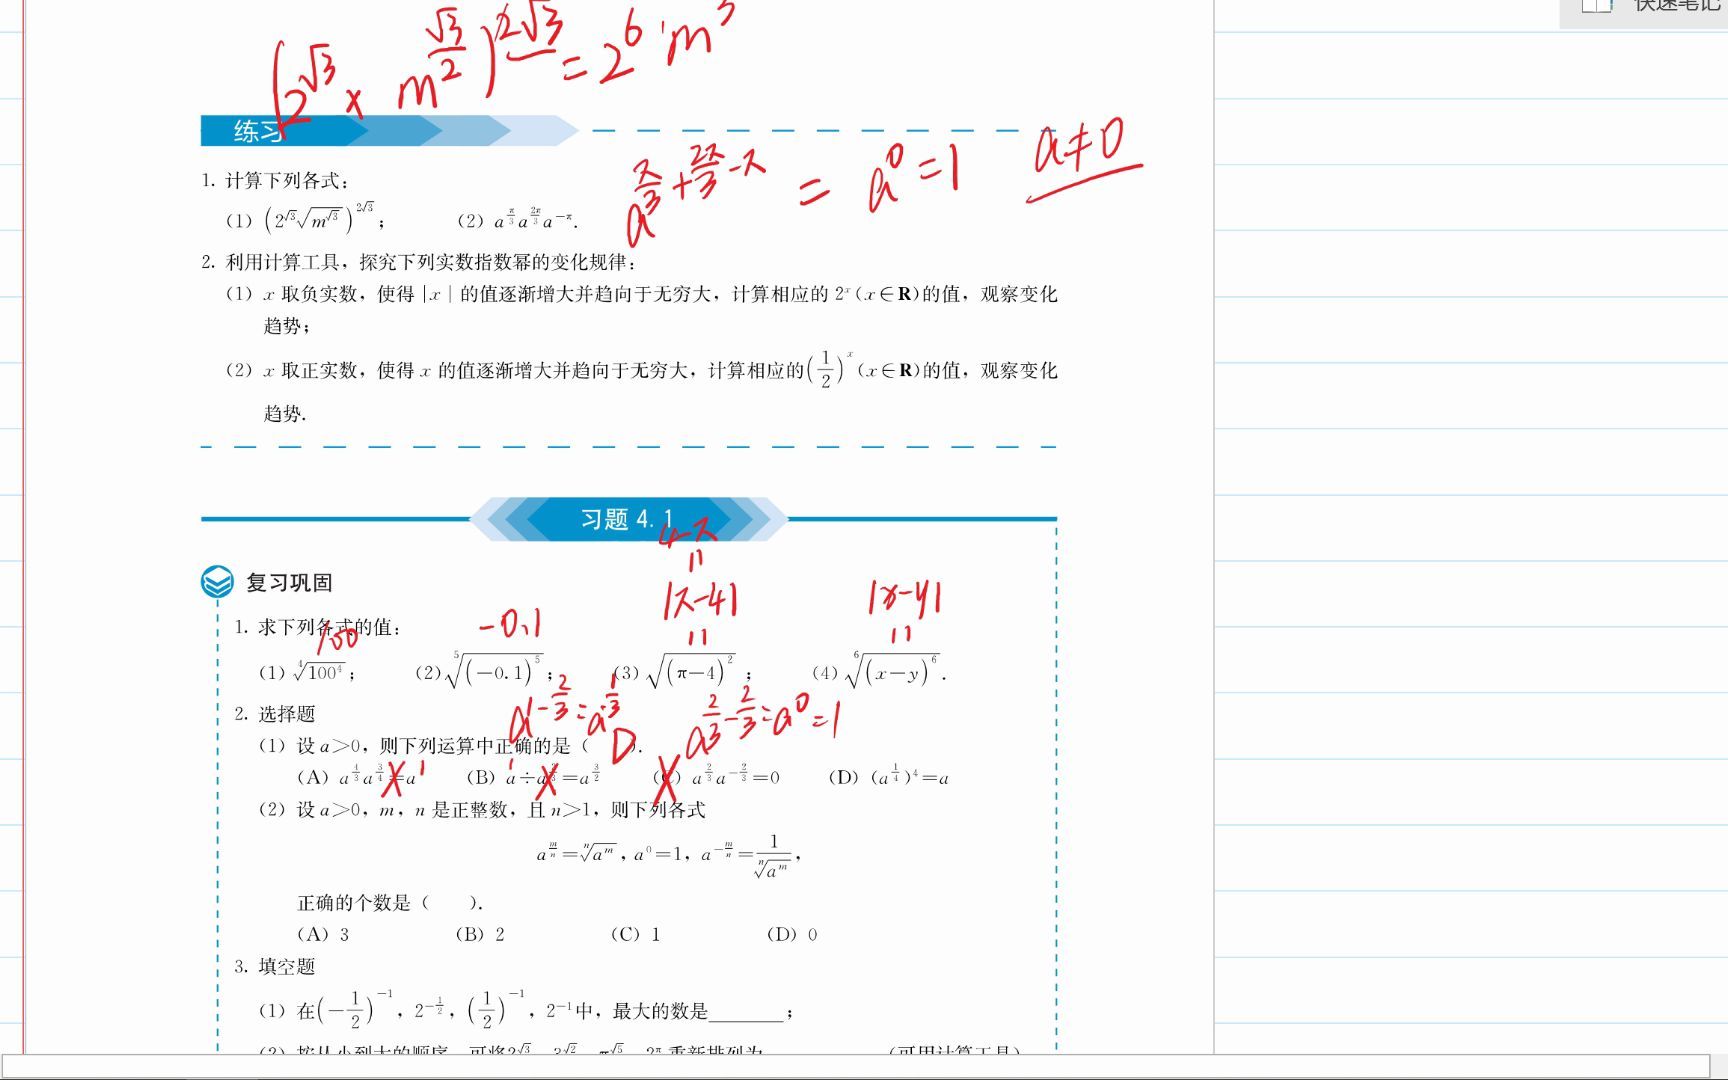 快速笔记
(2^√3 × m^(√3/2))^(2√3) = 2^6 · m^3
练习
a^(π/3+2π/3-π) = a^0 = 1 a≠0
1. 计算下列各式:
(1) (2^√3 √(m^√3))^(2√3); (2) a^(π/3) a^(2π/3) a^(-π).
2. 利用计算工具，探究下列实数指数幂的变化规律:
(1) x 取负实数，使得 |x| 的值逐渐增大并趋向于无穷大，计算相应的 2^x (x∈R)的值，观察变化
趋势;
(2) x 取正实数，使得 x 的值逐渐增大并趋向于无穷大，计算相应的(1/2)^x (x∈R)的值，观察变化
趋势.
习题 4.1
4-π
=
复习巩固
|π-4| |x-y|
1. 求下列各式的值:
100 -0.1 = =
(1) ⁴√(100^4); (2) ⁵√((-0.1)^5); (3) √((π-4)^2); (4) ⁶√((x-y)^6).
a^(1-2/3) = a^(1/3) a^(2/3-2/3) = a^0 = 1
2. 选择题
(1) 设 a>0，则下列运算中正确的是( D ).
(A) a^(4/3) a^(3/4) = a (B) a÷a^(2/3) = a^(3/2) (C) a^(2/3) a^(-2/3) = 0 (D) (a^(1/4))^4 = a
(2) 设 a>0，m，n 是正整数，且 n>1，则下列各式
a^(m/n) = ⁿ√(a^m)，a^0 = 1，a^(-m/n) = 1/ⁿ√(a^m)，
正确的个数是( ).
(A) 3 (B) 2 (C) 1 (D) 0
3. 填空题
(1) 在(-1/2)^(-1)，2^(-1/2)，(1/2)^(-1)，2^(-1)中，最大的数是________;